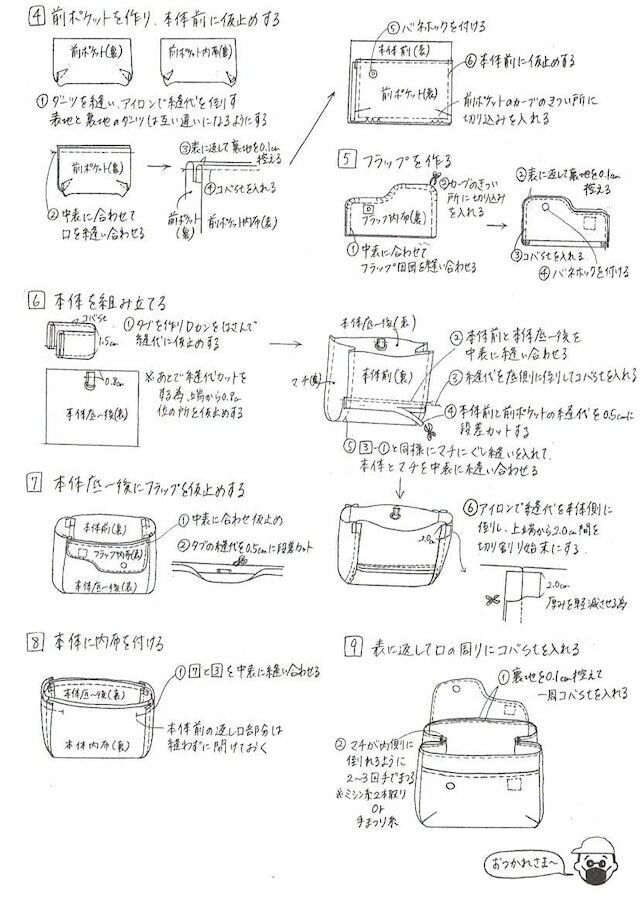 4 前ポケットを作り、本体前に仮止めする
前ポケット(裏)
前ポケット内布(裏)
①ダーツを縫い、アイロンで縫代を倒す
表地と裏地のダーツは互い違いになるようにする
前ポケット(裏)
②中表に合わせて
口を縫い合わせる
③表に返して裏地を0.1cm
控える
④コバstを入れる
前ポケット(表)
前ポケット内布(表)
⑤バネホックを付ける
本体前(表)
⑥本体前に仮止めする
前ポケット(表)
前ポケットのカーブのきつい所に
切り込みを入れる
5 フラップを作る
フラップ内布(裏)
①中表に合わせて
フラップ周囲を縫い合わせる
②カーブのきつい
所に切り込み
を入れる
②表に返して裏地を0.1cm
控える
③コバstを入れる
④バネホックを付ける
6 本体を組み立てる
コバst
1.5cm
①タブを作りDカンをはさんで
縫代に仮止めする
0.8cm
本体底〜後(表)
※あとで縫代カットを
する為、端から0.8cm
位の所を仮止めする
本体底〜後(表)
マチ(裏)
本体前(裏)
②本体前と本体底〜後を
中表に縫い合わせる
③縫代を底側に倒してコバstを入れる
④本体前と前ポケットの縫代を0.5cmに
段差カットする
⑤3-①と同様にマチにぐし縫いを入れて、
本体とマチを中表に縫い合わせる
2.0cm
⑥アイロンで縫代を本体側に
倒し、上端から2.0cm間を
切り割り始末にする
2.0cm
厚みを軽減させる為
7 本体底〜後にフラップを仮止めする
本体前(裏)
フラップ内布(表)
本体底〜後(表)
①中表に合わせ仮止め
②タブの縫代を0.5cmに段差カット
8 本体に内布を付ける
本体底〜後(裏)
本体内布(裏)
①7と3を中表に縫い合わせる
本体前の返し口部分は
縫わずに開けておく
9 表に返して口の周りにコバstを入れる
①裏地を0.1cm控えて
一周コバstを入れる
②マチが内側に
倒れるように
2〜3回手でまつる
※ミシン糸2本取り
or
手まつり糸
おつかれさま〜